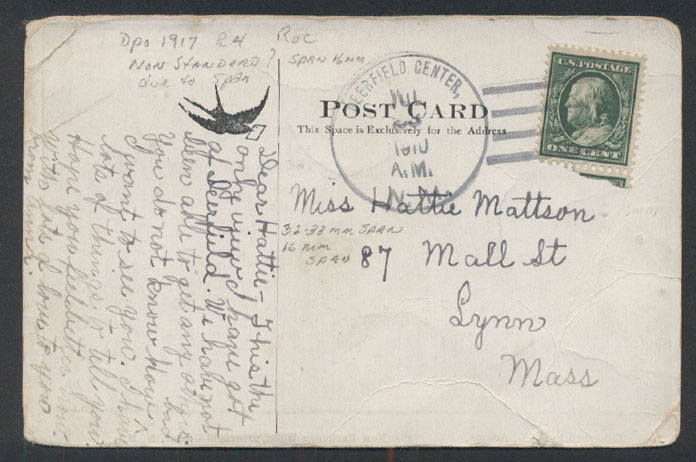 Dpo 1917 R4 Roc
Non Standard? Span 16mm
due to Span
DEERFIELD CENTER,
JUL
1910
A.M.
U.S. POSTAGE
ONE CENT
POST CARD
This Space is Exclusively for the Address
Miss Hattie Mattson
32-33 mm Span
16 mm
Span
87 Mall St
Lynn
Mass
Dear Hattie - This the
only view I have got
of Deerfield. We have not
been able to get any others
You do not know how
I want to see you. I have
lots of things to tell you
Hope you feel better now.
With lots of love to you
from